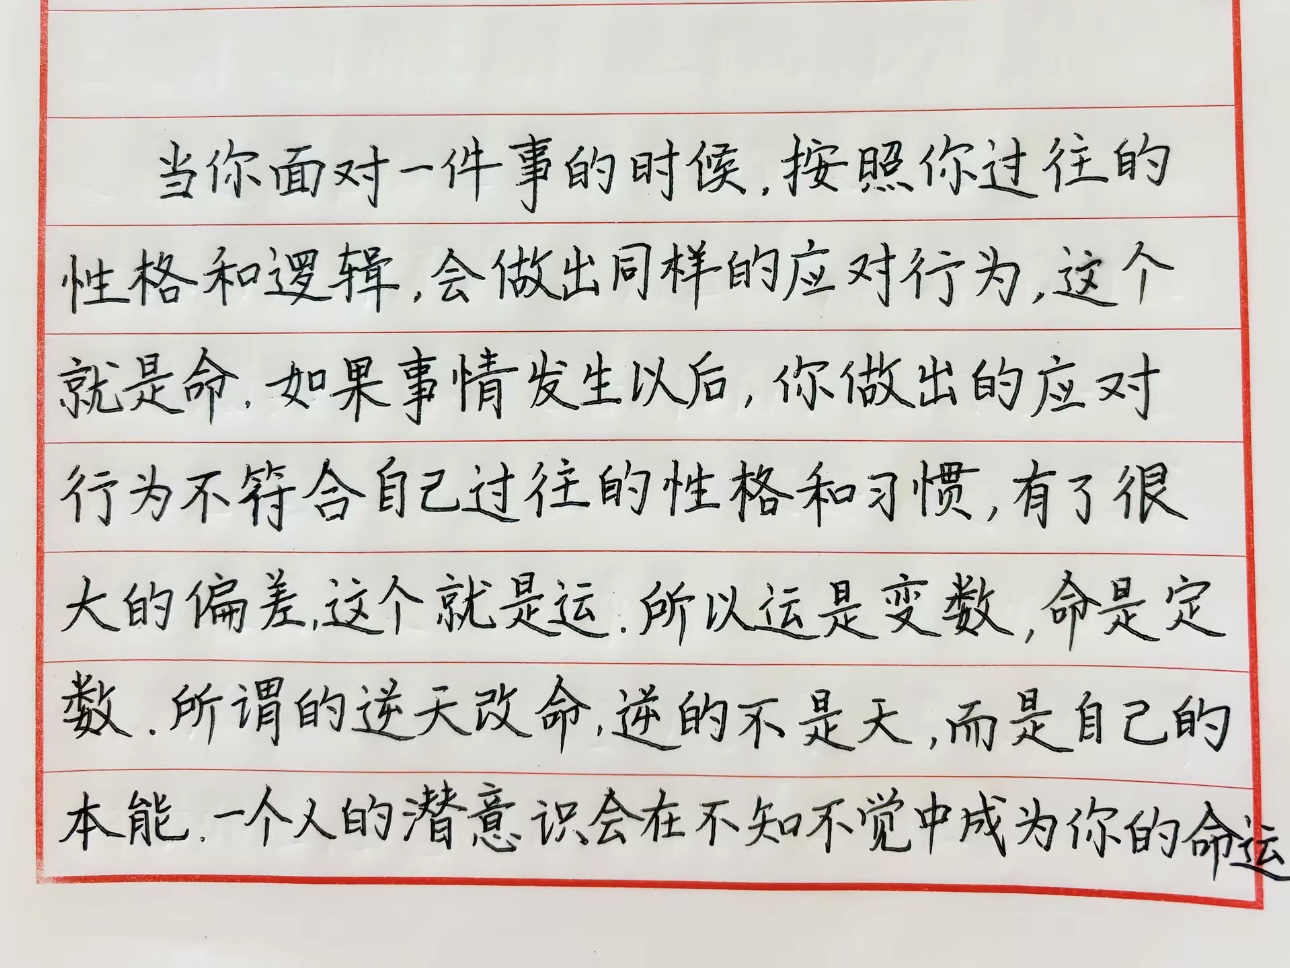 当你面对一件事的时候,按照你过往的
性格和逻辑,会做出同样的应对行为,这个
就是命.如果事情发生以后,你做出的应对
行为不符合自己过往的性格和习惯,有了很
大的偏差,这个就是运.所以运是变数,命是定
数.所谓的逆天改命,逆的不是天,而是自己的
本能.一个人的潜意识会在不知不觉中成为你的命运